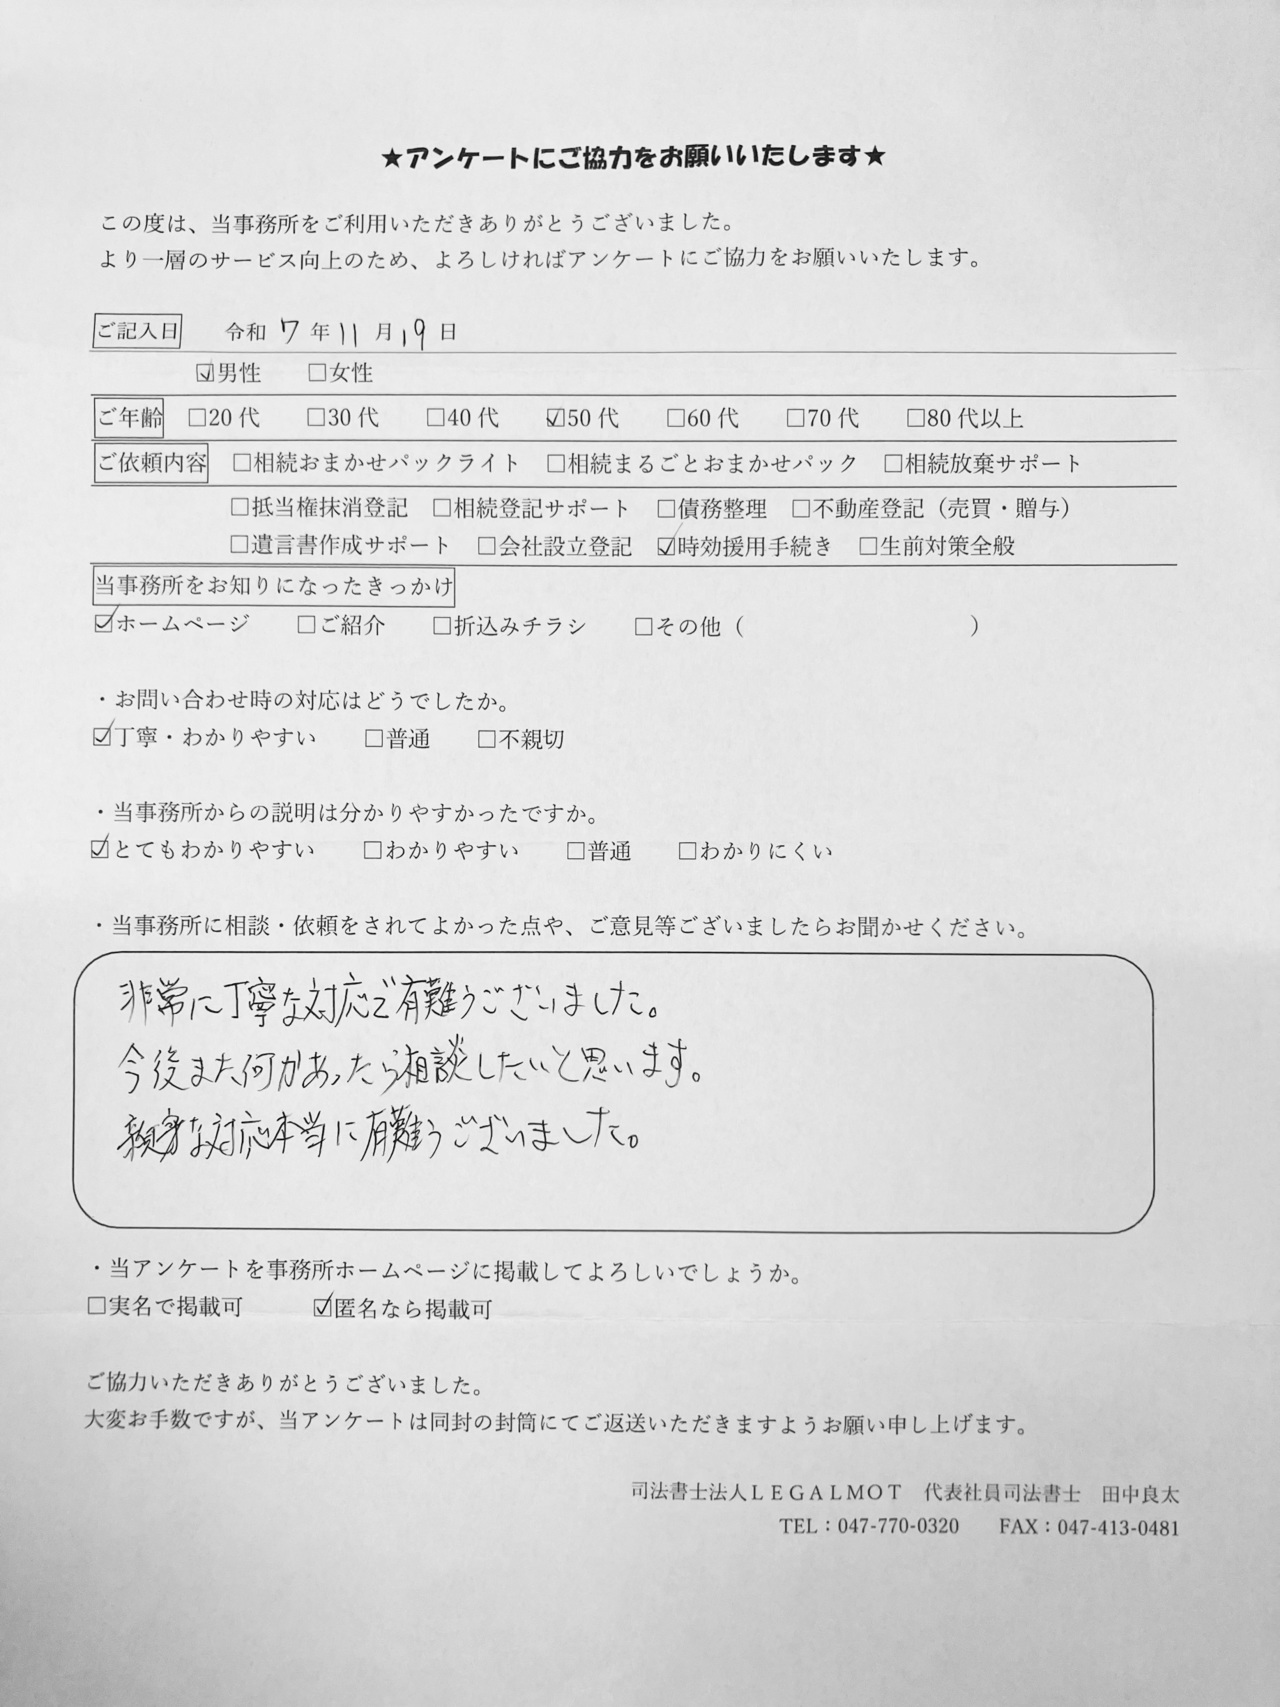 ★アンケートにご協力をお願いいたします★
この度は、当事務所をご利用いただきありがとうございました。
より一層のサービス向上のため、よろしければアンケートにご協力をお願いいたします。
ご記入日 令和 7 年 11 月 19 日
☑男性 □女性
ご年齢 □20 代 □30 代 □40 代 ☑50 代 □60 代 □70 代 □80 代以上
ご依頼内容 □相続おまかせパックライト □相続まるごとおまかせパック □相続放棄サポート
□抵当権抹消登記 □相続登記サポート □債務整理 □不動産登記（売買・贈与）
□遺言書作成サポート □会社設立登記 ☑時効援用手続き □生前対策全般
当事務所をお知りになったきっかけ
☑ホームページ □ご紹介 □折込みチラシ □その他（ ）
・お問い合わせ時の対応はどうでしたか。
☑丁寧・わかりやすい □普通 □不親切
・当事務所からの説明は分かりやすかったですか。
☑とてもわかりやすい □わかりやすい □普通 □わかりにくい
・当事務所に相談・依頼をされてよかった点や、ご意見等ございましたらお聞かせください。
非常に丁寧な対応で有難うございました。
今後また何かあったら相談したいと思います。
親身な対応本当に有難うございました。
・当アンケートを事務所ホームページに掲載してよろしいでしょうか。
□実名で掲載可 ☑匿名なら掲載可
ご協力いただきありがとうございました。
大変お手数ですが、当アンケートは同封の封筒にてご返送いただきますようお願い申し上げます。
司法書士法人ＬＥＧＡＬＭＯＴ 代表社員司法書士 田中良太
TEL：047-770-0320 FAX：047-413-0481